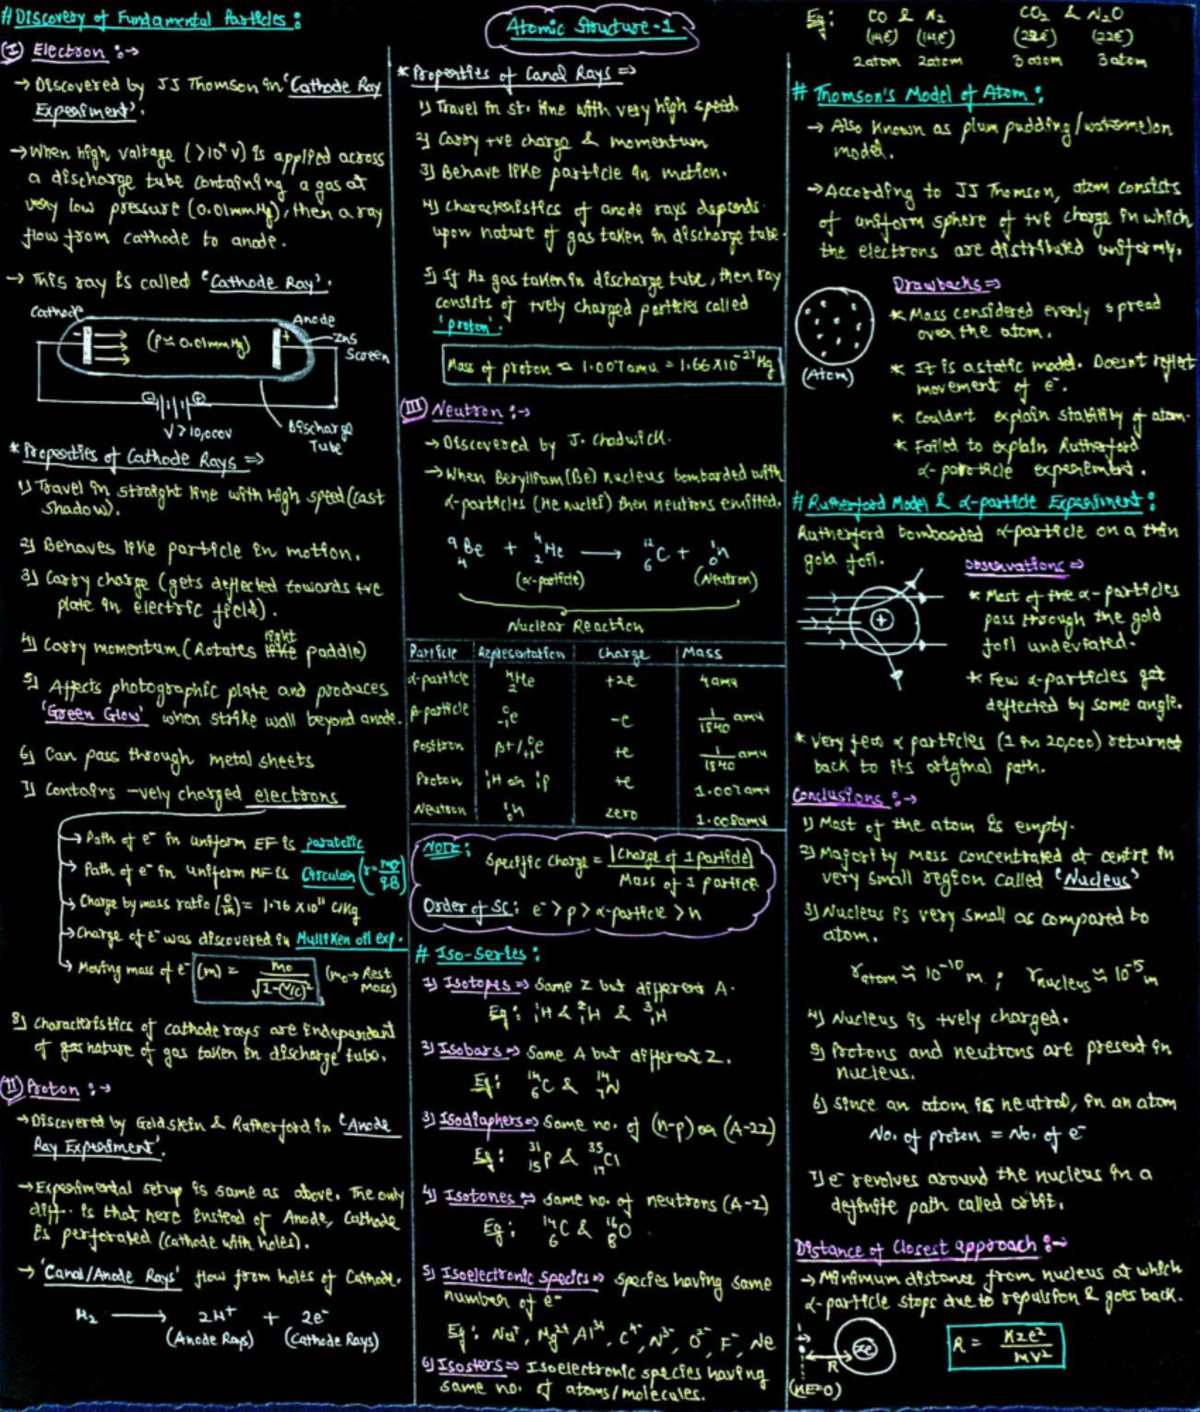 # Discovery of Fundamental Particles :
(I) Electron :→
→ Discovered by JJ Thomson in 'Cathode Ray
Experiment'.
→ When high valtage (>10⁴ v) is applied across
a discharge tube containing a gas at
very low pressure (0.01mmHg), then a ray
flow from cathode to anode.
→ This ray is called 'Cathode Ray'.
Cathode
Anode
- (P≈ 0.01mmHg) +
ZnS
Screen
V>10,000V
Discharge
Tube
* Properties of Cathode Rays ⇒
1) Travel in straight line with high speed (cast
shadow).
2) Behaves like particle in motion.
3) Carry charge (gets deflected towards +ve
plate in electric field).
4) Carry momentum (Rotates light paddle)
5) Affects photographic plate and produces
'Green Glow' when strike wall beyond anode.
6) Can pass through metal sheets
7) Contains -vely charged electrons
→ Path of e⁻ in uniform EF is parabolic
→ Path of e⁻ in uniform MF is Circular (r = mv/qB)
→ Charge by mass ratio (e/m) = 1.76 X10¹¹ C/Kg
→ Charge of e⁻ was discovered in Mulliken oil exp.
→ Moving mass of e⁻ (m) = mo/√1-(v/c)² (mo→ Rest
Mass)
8) Characteristics of cathode rays are independent
of gas nature of gas taken in discharge tube.
(II) Proton :→
→ Discovered by Goldstein & Rutherford in 'Anode
Ray Experiment'.
→ Experimental setup is same as above. The only
diff. is that here instead of Anode, Cathode
is perforated (cathode with holes).
→ 'Canal/Anode Rays' flow from holes of Cathode.
H₂ ⟶ 2H⁺ + 2e⁻
(Anode Rays) (Cathode Rays)
Atomic Structure-1
* Properties of Canal Rays ⇒
1) Travel in st. line with very high speed.
2) Carry +ve charge & momentum
3) Behave like particle in motion.
4) Characteristics of anode rays depends
upon nature of gas taken in discharge tube.
5) If H₂ gas taken in discharge tube, then ray
consists of +vely charged particles called
'proton'.
Mass of proton ≈ 1.007amu = 1.66X10⁻²⁷ Kg
(III) Neutron :→
→ Discovered by J. Chadwick.
→ When Beryllium (Be) nucleus bombarded with
α-particles (He nuclei) then neutrons emitted.
⁹₄Be + ⁴₂He ⟶ ¹²₆C + ¹₀n
(α-particle) (Neutron)
Nuclear Reaction
Particle Representation Charge Mass
α-particle ⁴₂He +2e 4amu
β-particle ⁰₋₁e -e 1/1840 amu
Positron β+/⁰₊₁e +e 1/1840 amu
Proton ¹₁H or ¹₁P +e 1.007amu
Neutron ¹₀n zero 1.008amu
NOTE:
Specific charge = |Charge of 1 particle|/Mass of 1 partice
Order of SC: e⁻ > p > α-particle > n
# Iso-Series :
1) Isotopes ⇒ Same Z but different A.
Eg : ¹₁H & ²₁H & ³₁H
2) Isobars ⇒ Same A but different Z.
Eg : ¹⁴₆C & ¹⁴₇N
3) Isodiaphers ⇒ Same no. of (n-p) or (A-2Z)
Eg : ³¹₁₅P & ³⁵₁₇Cl
4) Isotones ⇒ same no. of neutrons (A-Z)
Eg : ¹⁴₆C & ¹⁶₈O
5) Isoelectronic species ⇒ species having same
number of e⁻
Eg : Na⁺, Mg²⁺ Al³⁺, C⁴⁻, N³⁻, O²⁻, F⁻, Ne
6) Isosters ⇒ Isoelectronic species having
same no. of atoms/molecules.
Eg : CO & N₂ CO₂ & N₂O
(14e) (14e) (22e) (22e)
2atom 2atom 3 atom 3 atom
# Thomson's Model of Atom :
→ Also known as plum pudding/watermelon
model.
→ According to JJ Thomson, atom consists
of uniform sphere of +ve charge in which
the electrons are distributed uniformly.
Drawbacks ⇒
(Atom)
* Mass considered evenly spread
over the atom.
* It is a static model. Doesn't reflect
movement of e⁻.
* Couldn't explain stability of atom.
* Failed to explain Rutherford
α-particle experiement.
# Rutherford Model & α-particle Experiment :
Rutherford bombarded α-particle on a thin
gold foil.
Observations ⇒
+
* Most of the α-particles
pass through the gold
foil undeviated.
* Few α-particles get
deflected by some angle.
* Very few α particles (1 in 20,000) returned
back to its original path.
Conclusions :→
1) Most of the atom is empty.
2) Majority mass concentrated at centre in
very small region called 'Nucleus'
3) Nucleus is very small as compared to
atom.
r atom ≈ 10⁻¹⁰ m ; r nucleus ≈ 10⁻⁵ m
4) Nucleus is +vely charged.
5) Protons and neutrons are present in
nucleus.
6) Since an atom is neutral, in an atom
No. of proton = No. of e⁻
7) e⁻ revolves around the nucleus in a
definite path called orbit.
Distance of Closest approach :→
→ Minimum distance from nucleus at which
α-particle stops due to repulsion & goes back.
R
Ze
(KE=0)
R = KZe²/MV²